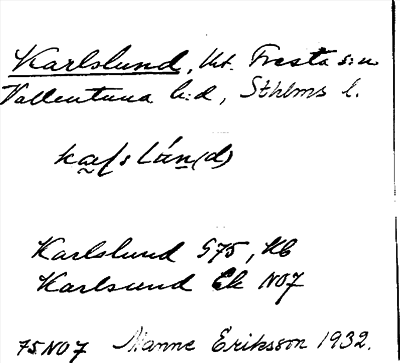 Karlslund, Ut. Fresta s:n
Vallentuna h:d, Sthlms l.
kaɽslún(d)
Karlslund S75, Kb
Karlsund Ek NO7
75NO7 Nanne Eriksson 1932.